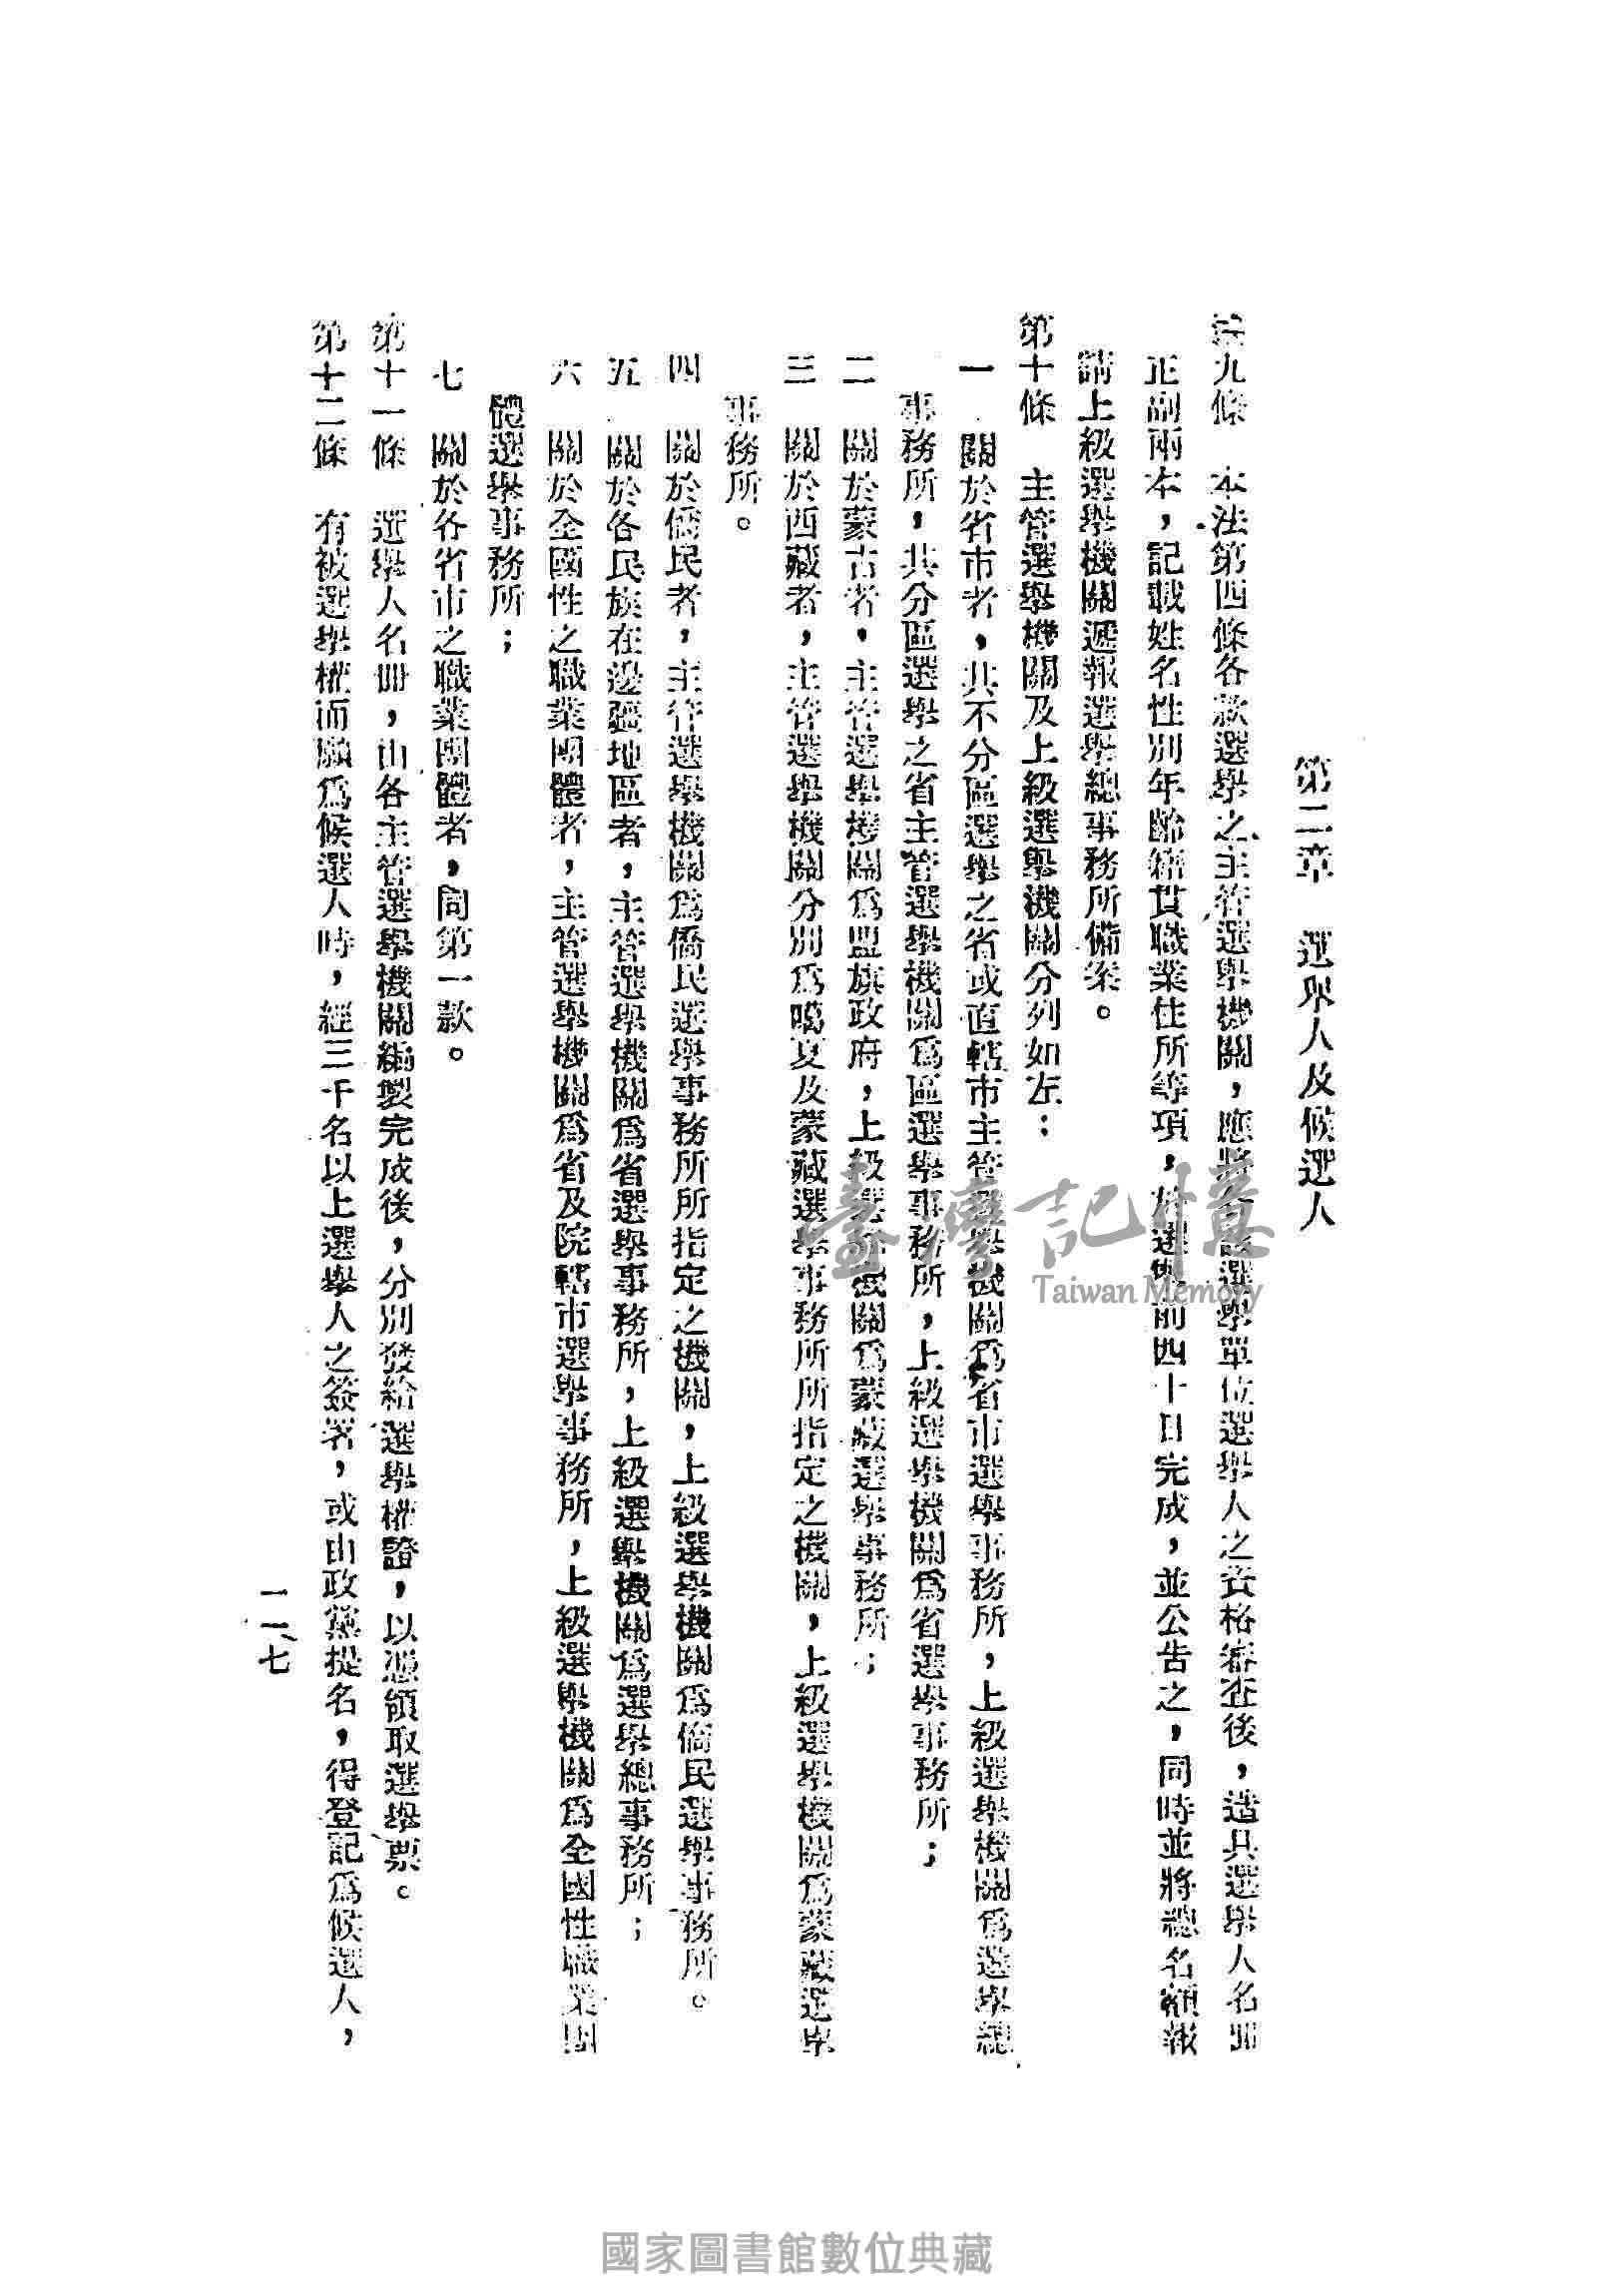 第二章　選舉人及候選人
第九條　本法第四條各款選舉之主管選舉機關，應將各該選舉單位選舉人之資格審查後，造具選舉人名冊
正副兩本，記載姓名性別年齡籍貫職業住所等項，於選舉前四十日完成，並公告之，同時並將總名額報
請上級選舉機關遞報選舉總事務所備案。
第十條　主管選舉機關及上級選舉機關分列如左：
一　關於省市者，其不分區選舉之省或直轄市主管選舉機關爲省市選舉事務所，上級選舉機關爲選舉總
事務所，其分區選舉之省主管選舉機關爲區選舉事務所，上級選舉機關爲省選舉事務所；
二　關於蒙古者，主管選舉機關爲盟旗政府，上級選舉機關爲蒙藏選舉事務所；
三　關於西藏者，主管選舉機關分別爲噶廈及蒙藏選舉事務所所指定之機關，上級選舉機關爲蒙藏選舉
事務所。
四　關於僑民者，主管選舉機關爲僑民選舉事務所所指定之機關，上級選舉機關爲僑民選舉事務所。
五　關於各民族在邊疆地區者，主管選舉機關爲省選舉事務所，上級選舉機關爲選舉總事務所；
六　關於全國性之職業團體者，主管選舉機關爲省及院轄市選舉事務所，上級選舉機關爲全國性職業團
體選舉事務所；
七　關於各省市之職業團體者，同第一款。
第十一條　選舉人名冊，由各主管選舉機關編製完成後，分別發給選舉權證，以憑領取選舉票。
第十二條　有被選舉權而願爲候選人時，經三千名以上選舉人之簽署，或由政黨提名，得登記爲候選人，
一一七
臺灣記憶
Taiwan Memory
國家圖書館數位典藏